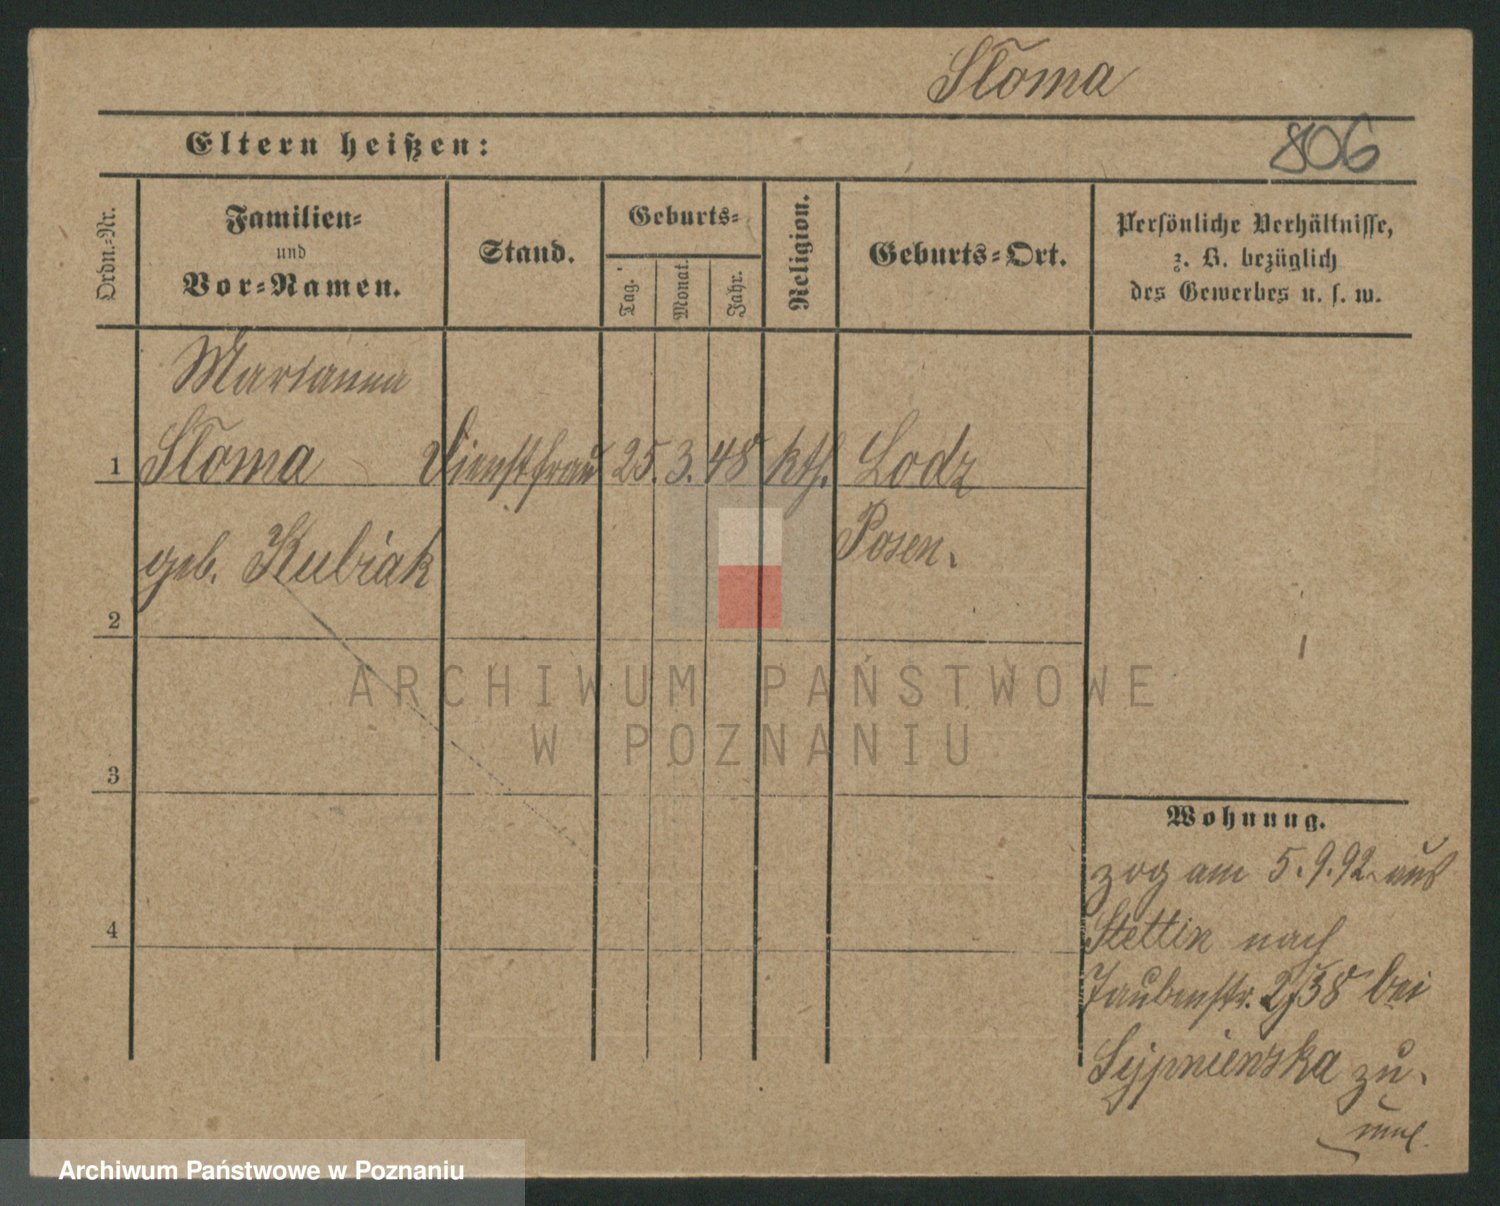 Słoma
Eltern heißen:
806
Ordn.=Nr.
Familien=
und
Vor=Namen.
Stand.
Geburts=
Tag.
Monat.
Jahr.
Religion.
Geburts=Ort.
Persönliche Verhältnisse,
z. B. bezüglich
des Gewerbes u. s. w.
Marianna
1 Słoma Dienstfrau 25. 3. 48 kth. Lodz
geb. Kubiak Posen.
2
3
4
Wohnung.
zog am 5.9.92. aus
Stettin nach
Taubenstr. 2/38 bei
Sypniewska zu.
ARCHIWUM PAŃSTWOWE
W POZNANIU
Archiwum Państwowe w Poznaniu